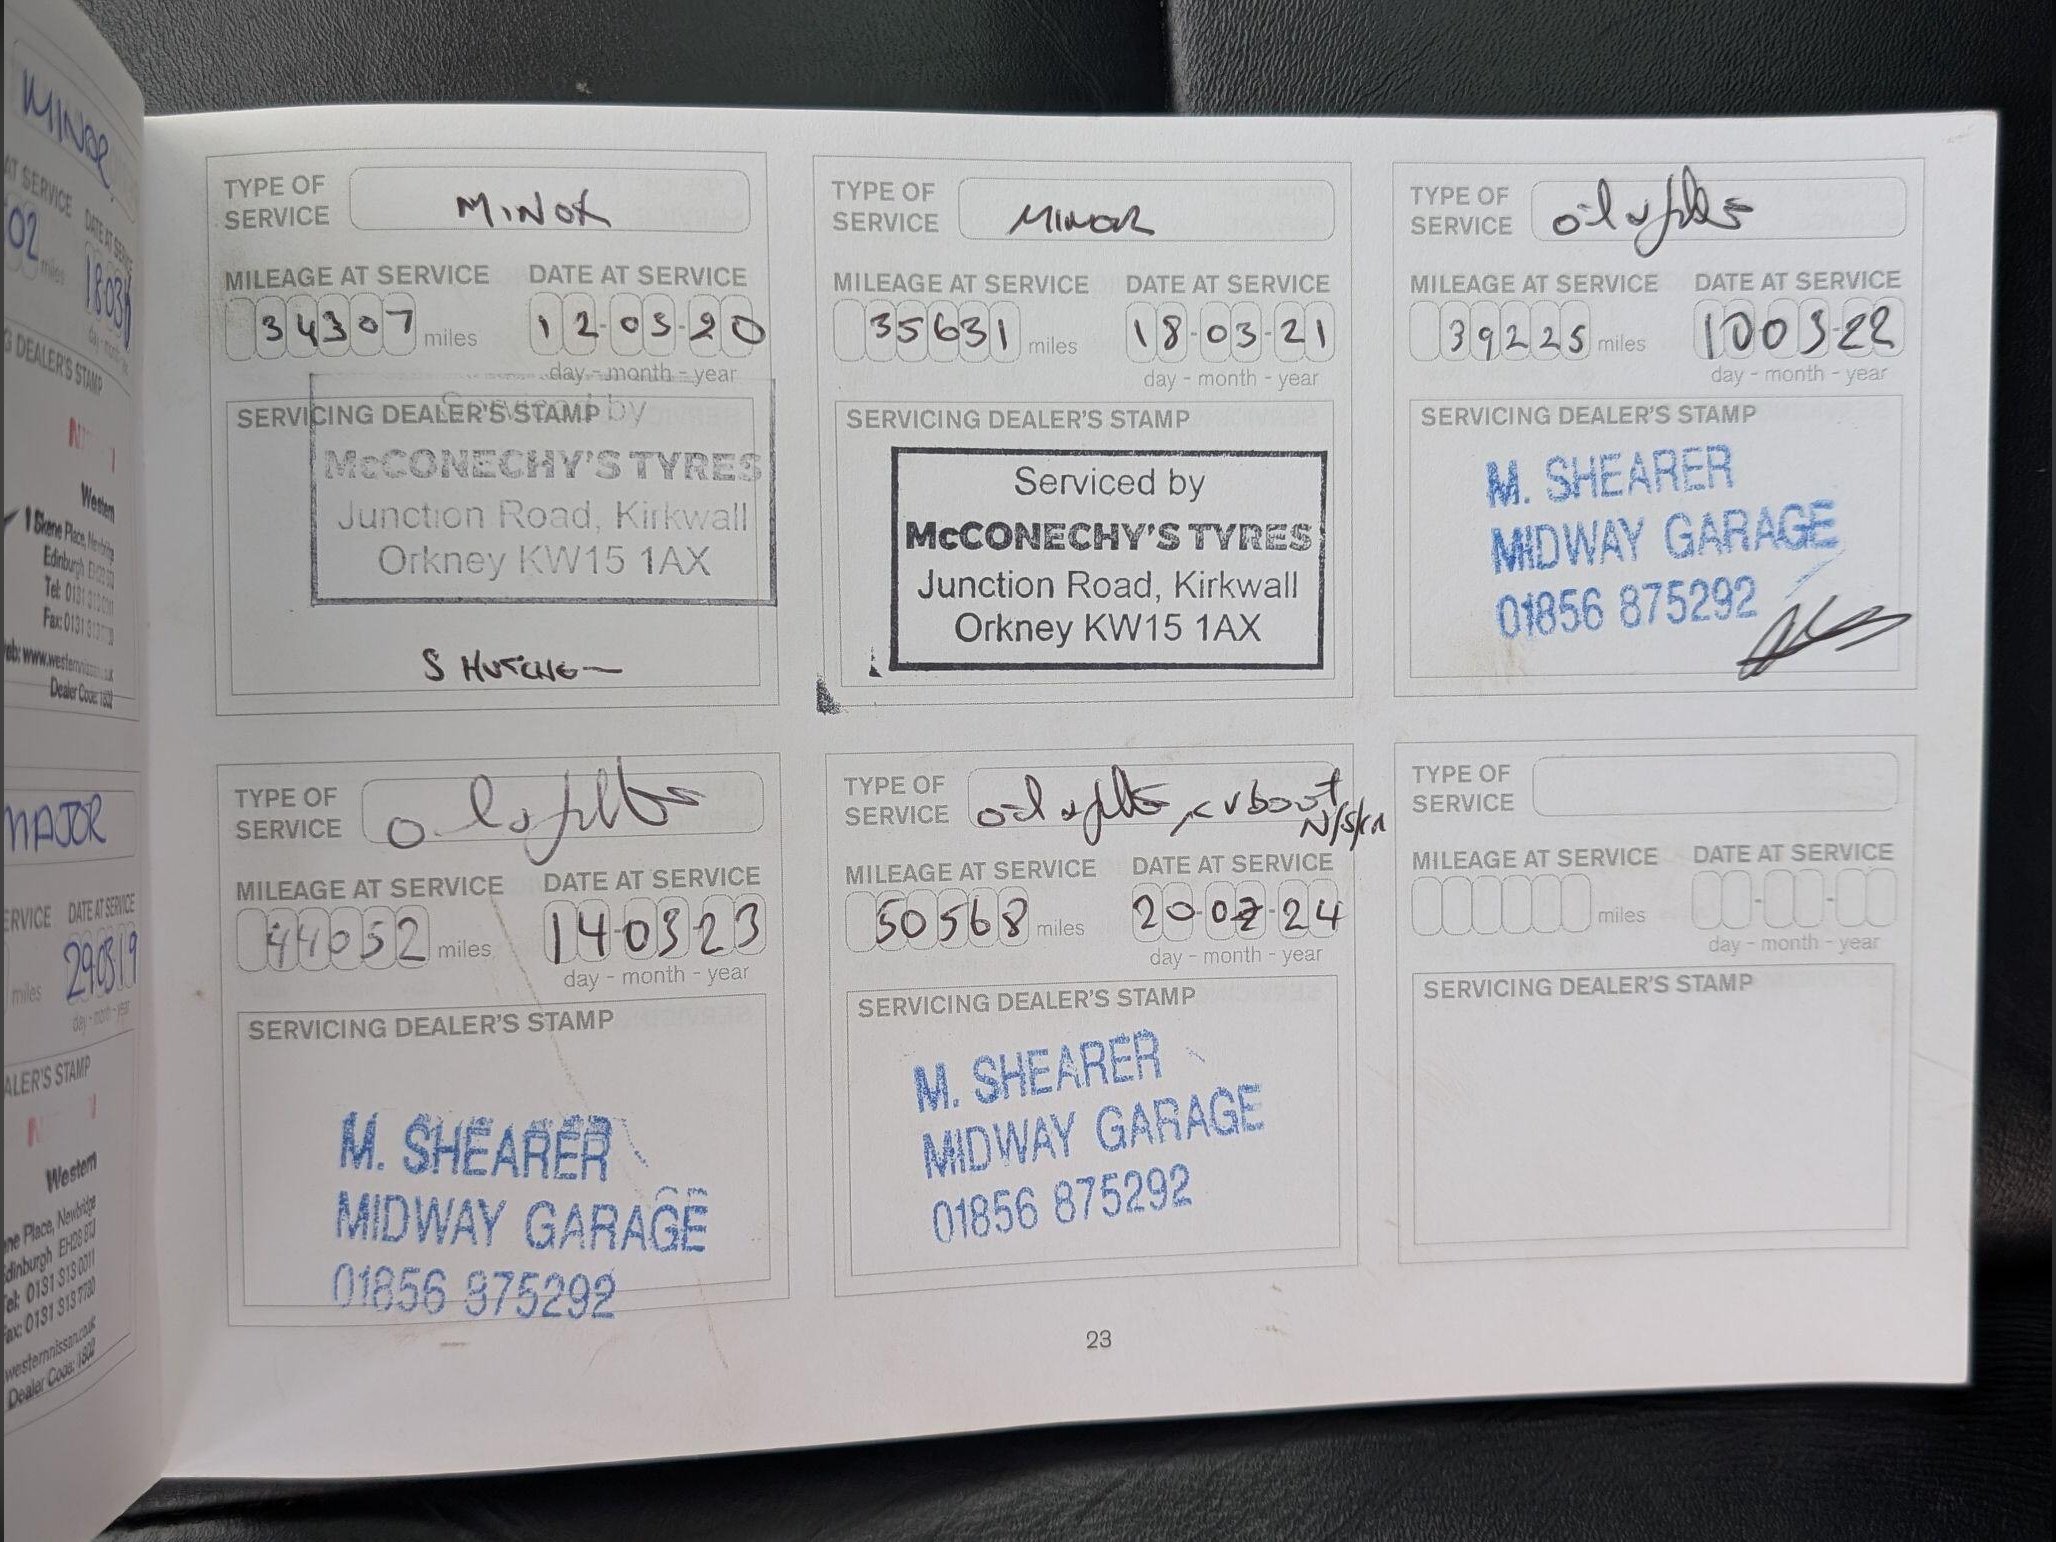 MINOR
AT SERVICE
DATE AT SERVICE
02
miles
1803
DEALER'S STAMP
Western
1 Skene Place, Newbridge
Edinburgh
Tel: 0131 313
Fax: 0131 313
Dealer Code: 1802
MAJOR
DATE AT SERVICE
miles
290319
day - month - year
ALER'S STAMP
Western
Place, Newbridge
Edinburgh EH28 8TJ
Tel: 0131 313 0011
Fax: 0131 313 7780
westernnissan.co.uk
Dealer Code: 1802
TYPE OF
SERVICE
MINOR
MILEAGE AT SERVICE
DATE AT SERVICE
34307 miles
12-03-20
day - month - year
SERVICING DEALER'S STAMP
Serviced by
McCONECHY'S TYRES
Junction Road, Kirkwall
Orkney KW15 1AX
TYPE OF
SERVICE
MINOR
MILEAGE AT SERVICE
DATE AT SERVICE
35631 miles
18-03-21
day - month - year
SERVICING DEALER'S STAMP
Serviced by
McCONECHY'S TYRES
Junction Road, Kirkwall
Orkney KW15 1AX
TYPE OF
SERVICE
oil & filter
MILEAGE AT SERVICE
DATE AT SERVICE
39225 miles
100322
day - month - year
SERVICING DEALER'S STAMP
M. SHEARER
MIDWAY GARAGE
01856 875292
TYPE OF
SERVICE
oil & filter
MILEAGE AT SERVICE
DATE AT SERVICE
44052 miles
14-03-23
day - month - year
SERVICING DEALER'S STAMP
M. SHEARER
MIDWAY GARAGE
01856 875292
TYPE OF
SERVICE
oil & filter, cv boot
MILEAGE AT SERVICE
DATE AT SERVICE
50568 miles
20-02-24
day - month - year
SERVICING DEALER'S STAMP
M. SHEARER
MIDWAY GARAGE
01856 875292
TYPE OF
SERVICE
MILEAGE AT SERVICE
DATE AT SERVICE
miles
day - month - year
SERVICING DEALER'S STAMP
23